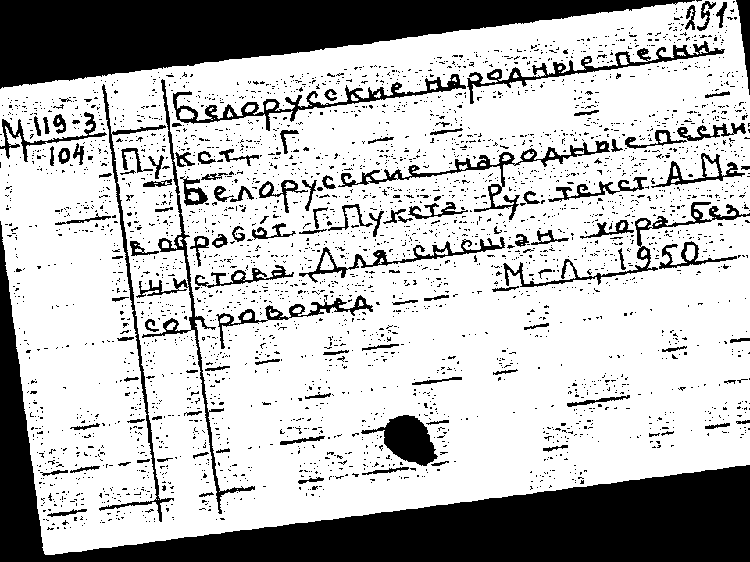 251
Белорусские народные песни.
М 119-3
104.
Пукст, Г.
Белорусские народные песни
в обработ Г. Пукста Рус. текст А. Ма-
шистова Для смешан хора без
сопровожд. М.-Л., 1950